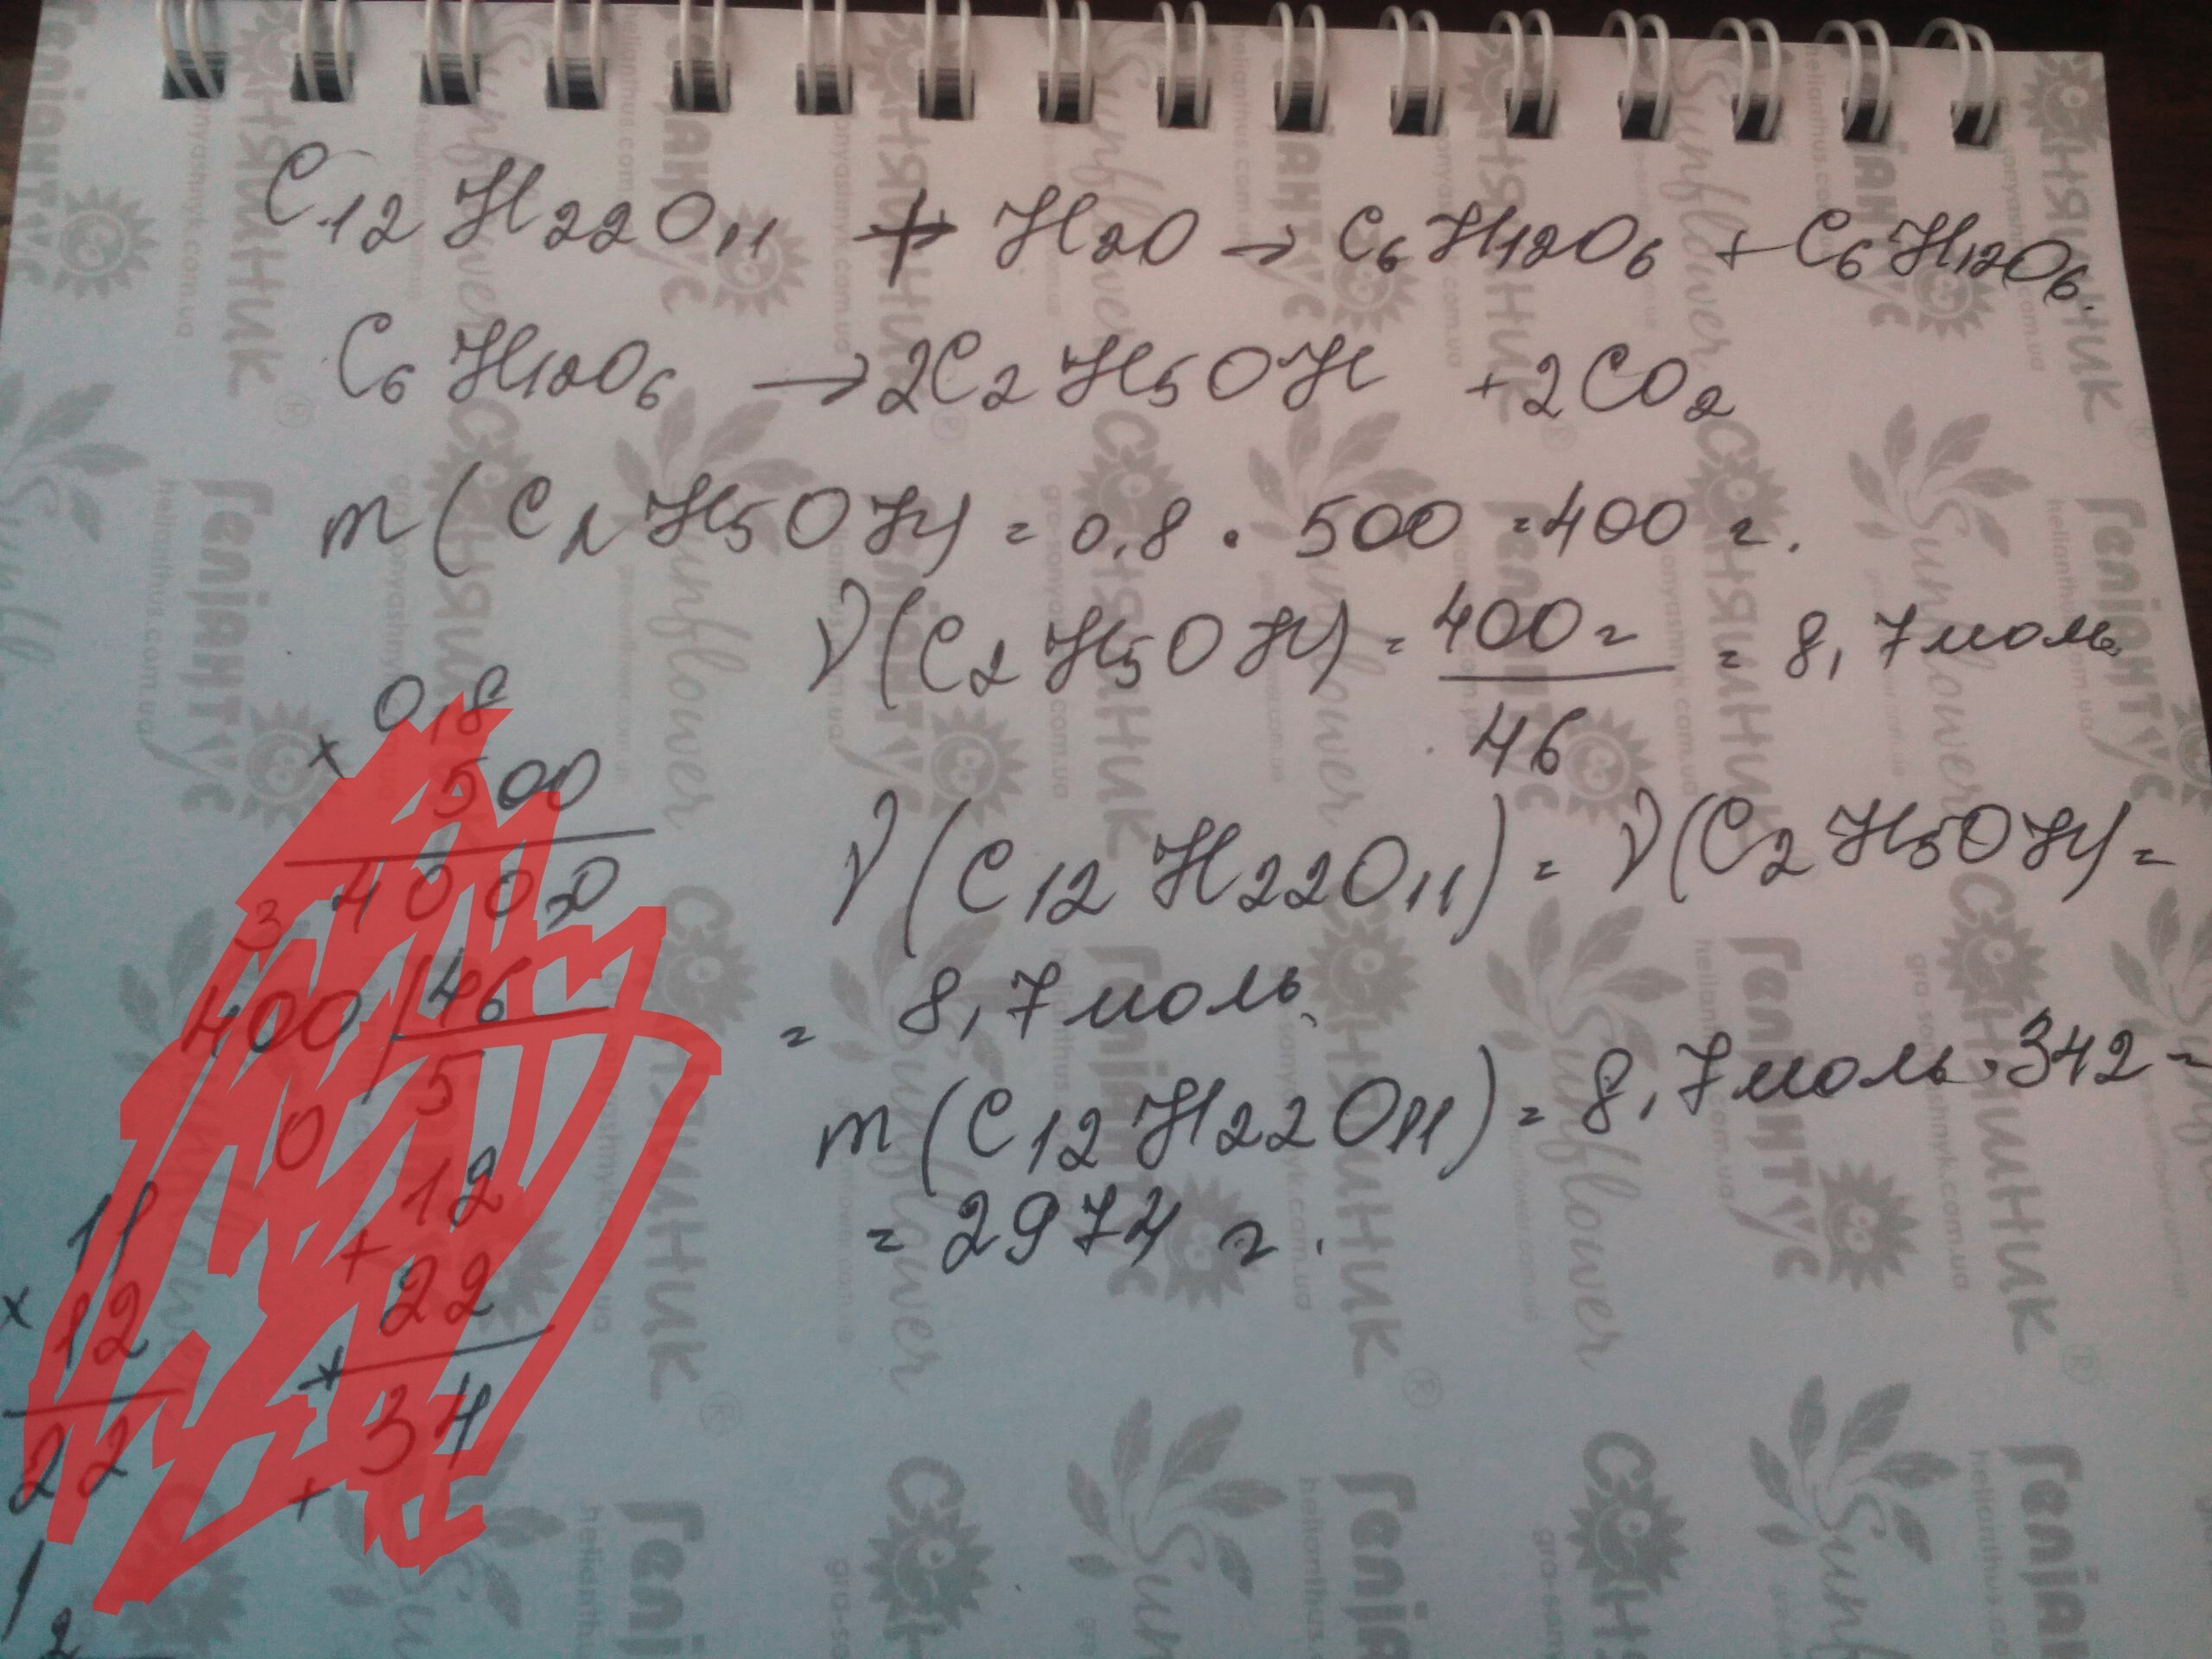 C12H22O11 + H2O → C6H12O6 + C6H12O6.
C6H12O6 → 2C2H5OH + 2CO2
m(C2H5OH) = 0,8 · 500 = 400 г.
ν(C2H5OH) = 400 г / 46 = 8,7 моль
ν(C12H22O11) = ν(C2H5OH) =
= 8,7 моль
m(C12H22O11) = 8,7 моль · 342 =
= 2974 г.
0,8
× 500
400
46
5
0
11
× 12
22
12
+ 22
34
Соняшник
Sunflower
Геліантус